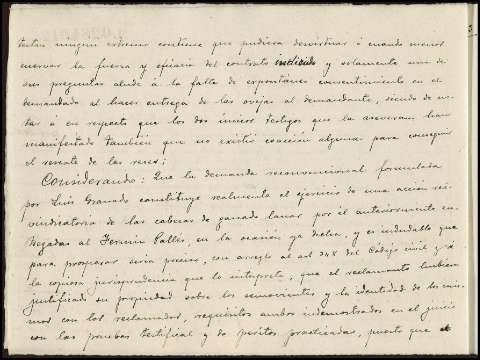 testar ningun extremo contiene que pudiera desvirtuar ó cuando menos
enervar la fuerza y eficacia del contrato indicado y solamente una de
sus preguntas alude á la falta de expontáneo consentimiento en el
demandado al hacer entrega de las ovejas al demandante, siendo de no-
tar á su respecto que los dos únicos testigos que la aseveran han
manifestado tambien que no existió coacción alguna para conseguir
el remate de las reses;
Considerando: Que la demanda reconvencional formulada
por Luis Granado constituye realmente el ejercicio de una accion rei-
vindicatoria de las cabezas de ganado lanar por él anteriormente en-
tregadas al Fermin Pallés, en la ocasión ya dicha, y es indudable que
para prosperar seria preciso, con arreglo al art 348 del Código civil y á
la copiosa jurisprudencia que lo interpreta, que el reclamante hubiera
justificado su propiedad sobre los semovientes y la identidad de los mis-
mos con los reclamados, requisitos ambos indemostrados en el juicio
con las pruebas testifical y de peritos practicadas, puesto que